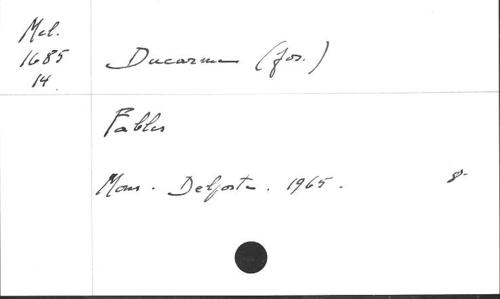 Mél.
1685
14.
Ducarme (Jos.)
Fables
Mons. Delporte. 1965.
8°